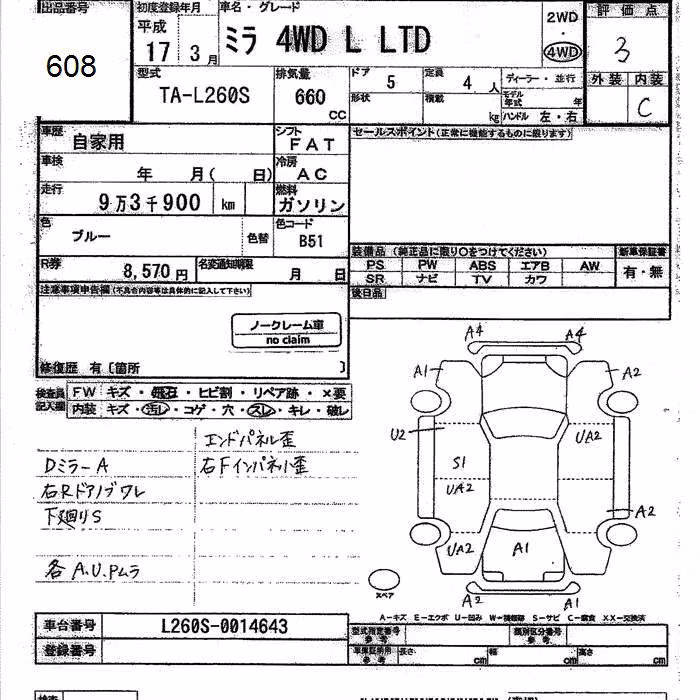 出品番号
608
初度登録年月
平成
17 3月
車名・グレード
ミラ 4WD L LTD
2WD
・
4WD
評価点
3
外装 内装
C
型式
TA-L260S
排気量
660
CC
ドア
5
定員
4 人
形状
積載
kg
ディーラー・並行
モデル
年式 年
ハンドル 左・右
車歴
自家用
シフト
FAT
車検
年 月( 日)
冷房
AC
走行
9万3千900 km
燃料
ガソリン
色
ブルー
色替
色コード
B51
R券
8,570円
名変通知期限
月 日
セールスポイント(正常に機能するものに限ります)
装備品(純正品に限り○をつけてください)
PS PW ABS エアB AW
SR ナビ TV カワ
新車保証書
有・無
後日品
注意事項申告欄(不具合内容等は具体的に記入して下さい)
ノークレーム車
no claim
修復歴 有〔箇所 〕
検査員
記入欄
FW キズ・飛石・ヒビ割・リペア跡・×要
内装 キズ・汚レ・コゲ・穴・スレ・キレ・破レ
エンドパネル歪
DミラーA 右Fインパネ小歪
右Rドアノブワレ
下廻りS
各A.U.Pムラ
A4 A4
A1 A2
U2 UA2
S1
UA2
A2
UA2 A1
A2 A1
スペア
A-キズ E-エクボ U-凹み W-補修跡 S-サビ C-腐食 XX-交換済
車台番号
L260S-0014643
登録番号
型式指定番号
参考
類別区分番号
参考
車庫証明用
参考
長さ cm 幅 cm 高さ cm